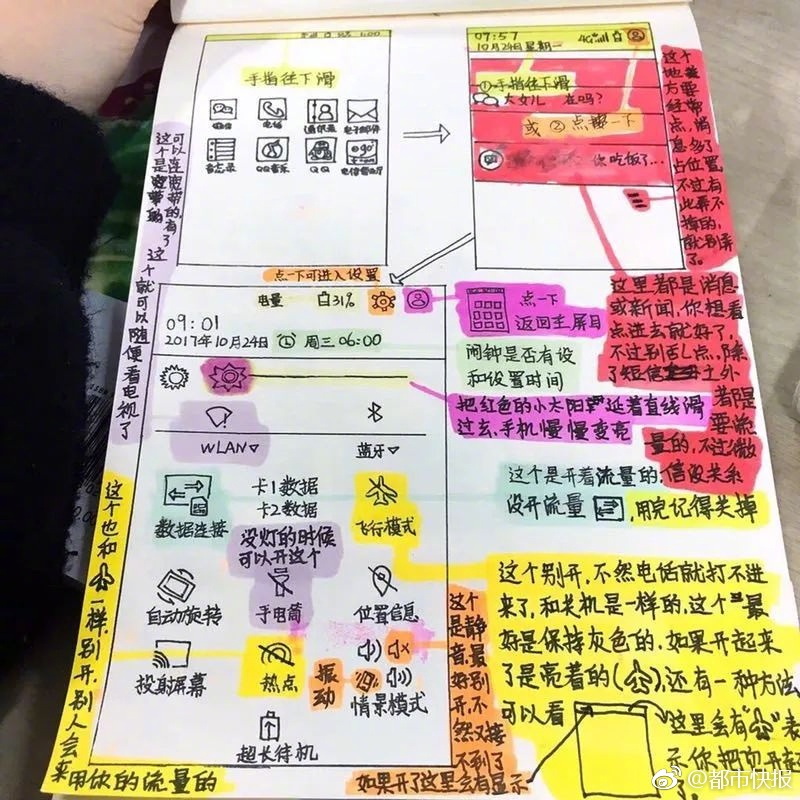 手指往下滑
微信
电话
通讯录
电子邮件
备忘录
QQ音乐
QQ
07:57
4G
10月24日星期一
①手指往下滑
大女儿 在吗?
或②点一下
你吃饭了...
这个
地
方要
经常
点,消
息多了
占位置,
不过有
些弄不
掉的,
就别弄
了。
可以连宽带的,有了
这个是宽带的
这个就可以随便看电视了
点一下可进入设置
电量
31%
09:01
2017年10月24日
周三06:00
点一下
返回主屏目
闹钟是否有设
和设置时间
这里都是消息
或新闻,你想看
点进去就好了,
不过别乱点,除
了短信之外
都是
要流
量的,不过微
信没关系
把红色的小太阳延着直线滑
过去,手机慢慢变亮
WLAN
蓝牙
数据连接
卡1数据
卡2数据
飞行模式
这个是开着流量的,
没开流量
用完记得关掉
没灯的时候
可以开这个
自动旋转
手电筒
位置信息
投射屏幕
热点
振动
情景模式
超长待机
这个
是静
音,最
好别
开,不
然又接
不到了
如果开了这里会有显示
这个别开,不然电话就打不进
来了,和关机是一样的,这个最
好是保持灰色的,如果开起来
了是亮着的( ),还有一种方法
可以看
这里会有“ ”表
示你把它开
这个也和
一样,别开,别人会
来用你的流量的
@都市快报